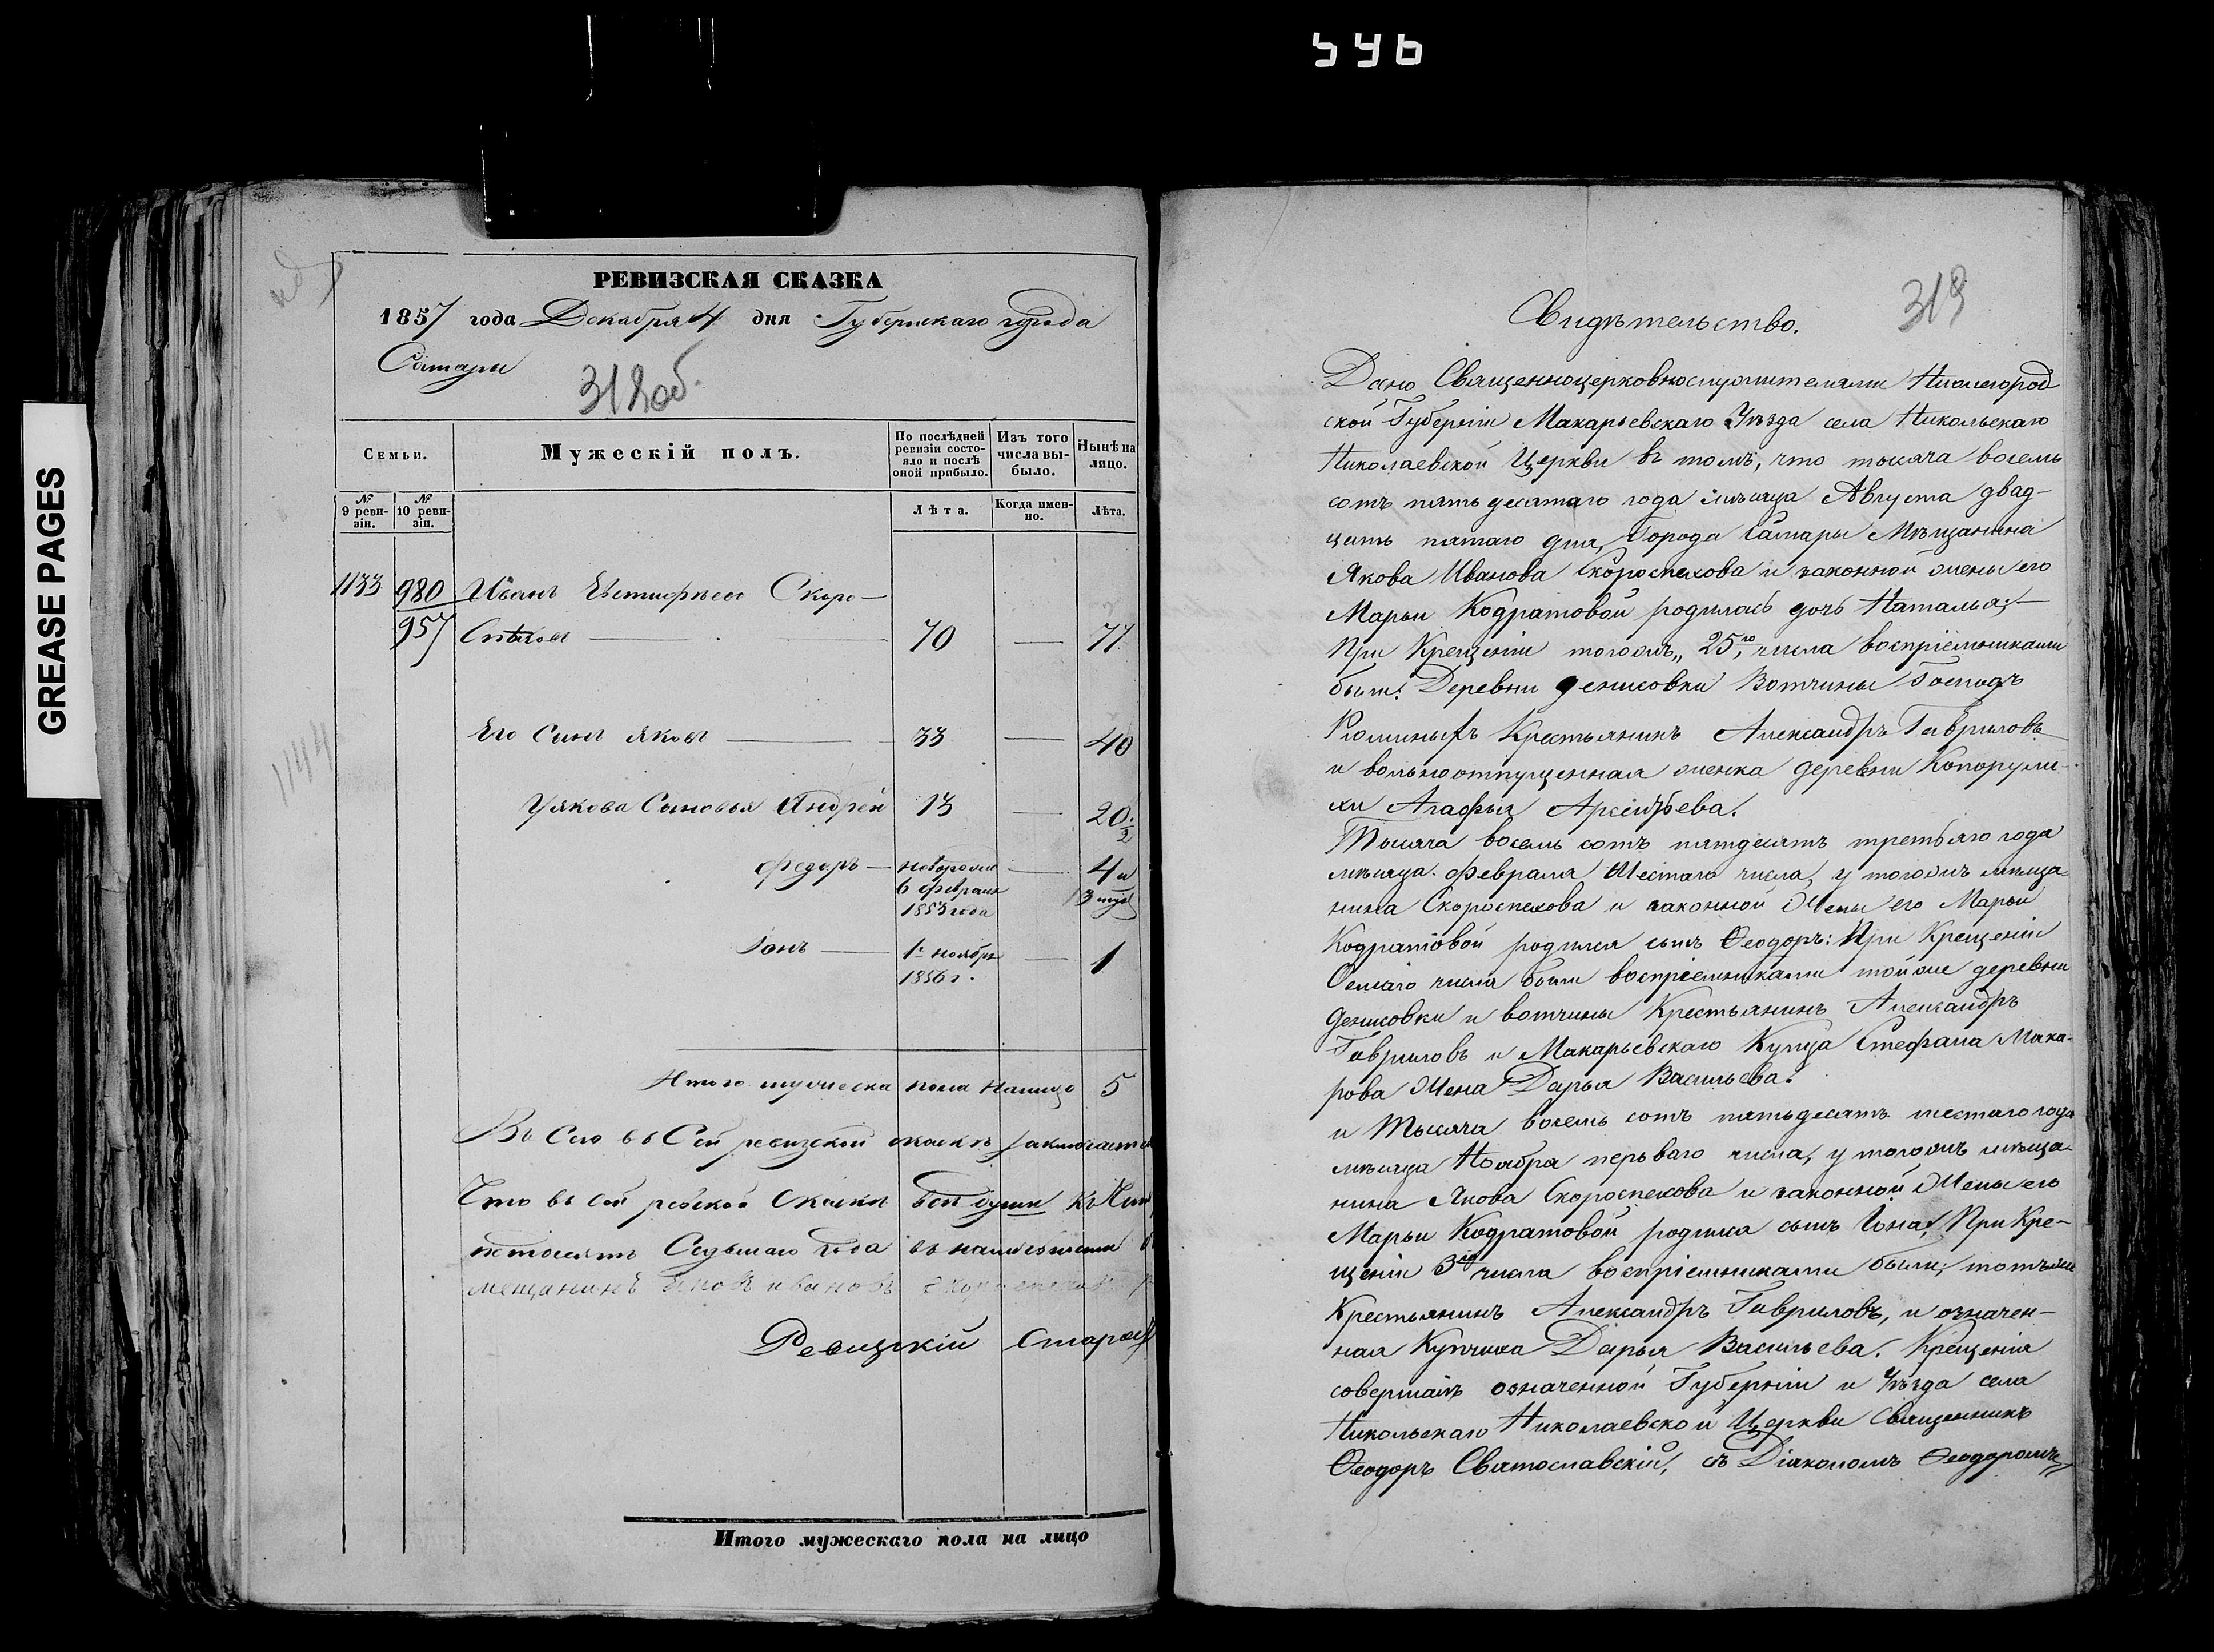 596
GREASE PAGES
РЕВИЗСКАЯ СКАЗКА
1857 года Декабря 4 дня Губернскаго города
Самары
318об.
Семьи.
Мужескій полъ.
По послѣдней ревизіи состояло и послѣ оной прибыло.
Изъ того числа выбыло.
Нынѣ на лицо.
№ 9 ревизіи.
№ 10 ревизіи.
Лѣта.
Когда именно.
Лѣта.
1133 980 Иванъ Евстифѣевъ Скоро-
957 спѣховъ 70 — 77
1144
Его Сынъ Яковъ 33 — 40
У Якова Сыновья Андрей 13 — 20
Федоръ — новорожд — 4 и
6 февраля
1853 года
Іонъ — 1го ноября — 1
1856 г.
Итого мужеска пола налицо 5
что въ сей
Седьмаго года
мещанинъ Яковъ Ивановъ
Ревизскій Старос
Итого мужескаго пола на лицо
319
Свидѣтельство.
Дано Священноцерковнослужителями Нижегород
ской Губерніи Макарьевскаго Уѣзда села Никольскаго
Николаевской Церкви въ томъ, что тысяча восемь
сотъ пятьдесятаго года мѣсяца Августа двад-
цать пятаго дня, Города Самары Мѣщанина
Якова Иванова Скороспехова и законной жены его
Марьи Кодратовой родилась дочь Наталья;—
При Крещеніи тогожъ „25го„ числа воспріемниками
были: Деревни Денисовки Вотчины Господъ
Крестьянинъ Александръ Гавриловъ
и вольноотпущенная женка деревни Копорули-
хи Агафья Арсеньева.
Тысяча восемь сотъ пятдесятъ третьяго года
мѣсяца февраля Шестаго числа, у тогожъ мѣща-
нина Скороспехова и законной Жены его Марьи
Кодратовой родился сынъ Ѳеодоръ: При Крещеніи
Осмаго числа были воспріемниками тойже деревни
Денисовки и вотчины Крестьянинъ Александръ
Гавриловъ и Макарьевскаго Купца Стефана Мака-
рова Жена Дарья Васильева.
и Тысяча восемь сотъ пятьдесятъ шестаго года
мѣсяца Ноября перьваго числа, у тогожъ мѣща-
нина Якова Скороспехова и законной Жены его
Марьи Кодратовой родился сынъ Іона, При Кре-
щеніи 3го числа воспріемниками были; тотъже
Крестьянинъ Александръ Гавриловъ, и означен-
ная Купчиха Дарья Васильева. Крещенія
совершалъ означенной Губерніи и Уѣзда села
Никольскаго Николаевской Церкви Священникъ
Ѳеодоръ Святославскій, съ Діакономъ Ѳеодоромъ